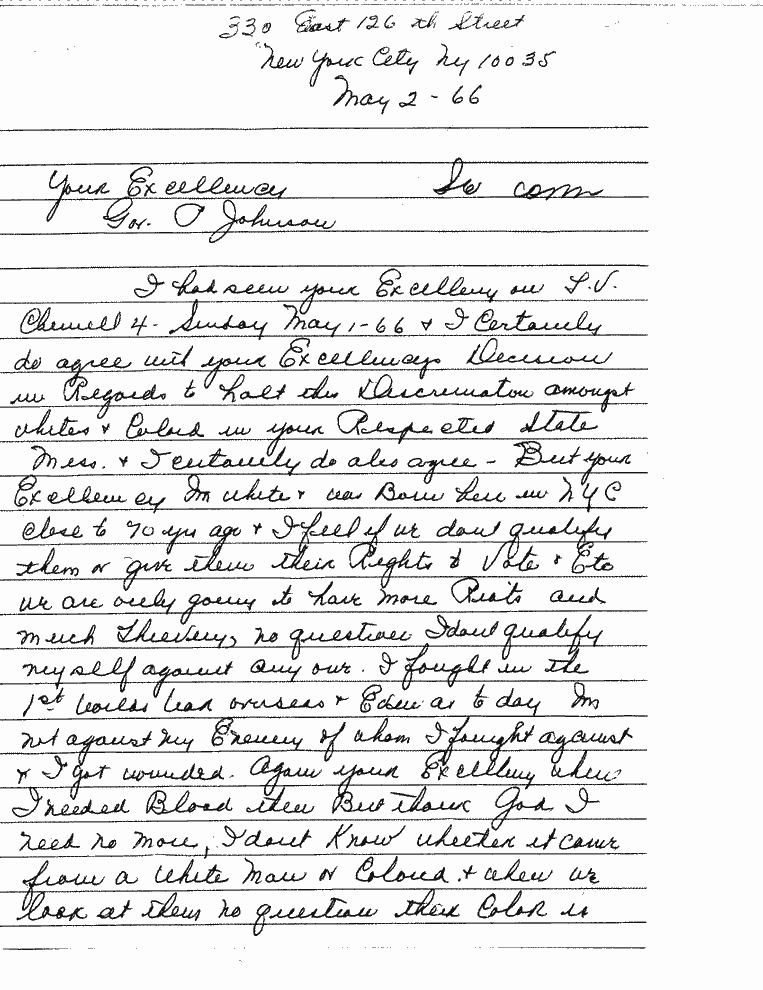 330 East 126 th Street
New York City Ny 10035
May 2 - 66
Your Excellency
So com
Gov. P Johnson
I had seen your Excelleny on T.V.
Chenell 4 - Sunday May 1-66 & I Certainly
do agree with your Excellencys Decision
in Regards to halt this Discrimaton amongst
whites & Colord in your Respected State
Miss. & I certainly do also agree - But your
Excellency Im white & was Born here in NYC
close to 70 yrs ago & I feel if we dont qualify
them or give them their Rights to Vote & Etc
we are only going to have more Riots and
much Thievery, no question I dont qualify
myself against any one. I fought in the
1st World War overseas & Even as to day Im
not against my Enemy of whom I fought against
& I got wounded. Again your Excelleny when
I needed Blood then But thank God I
need no more, I dont Know whether it came
from a White Man or Colored & when we
look at them no question their Color is